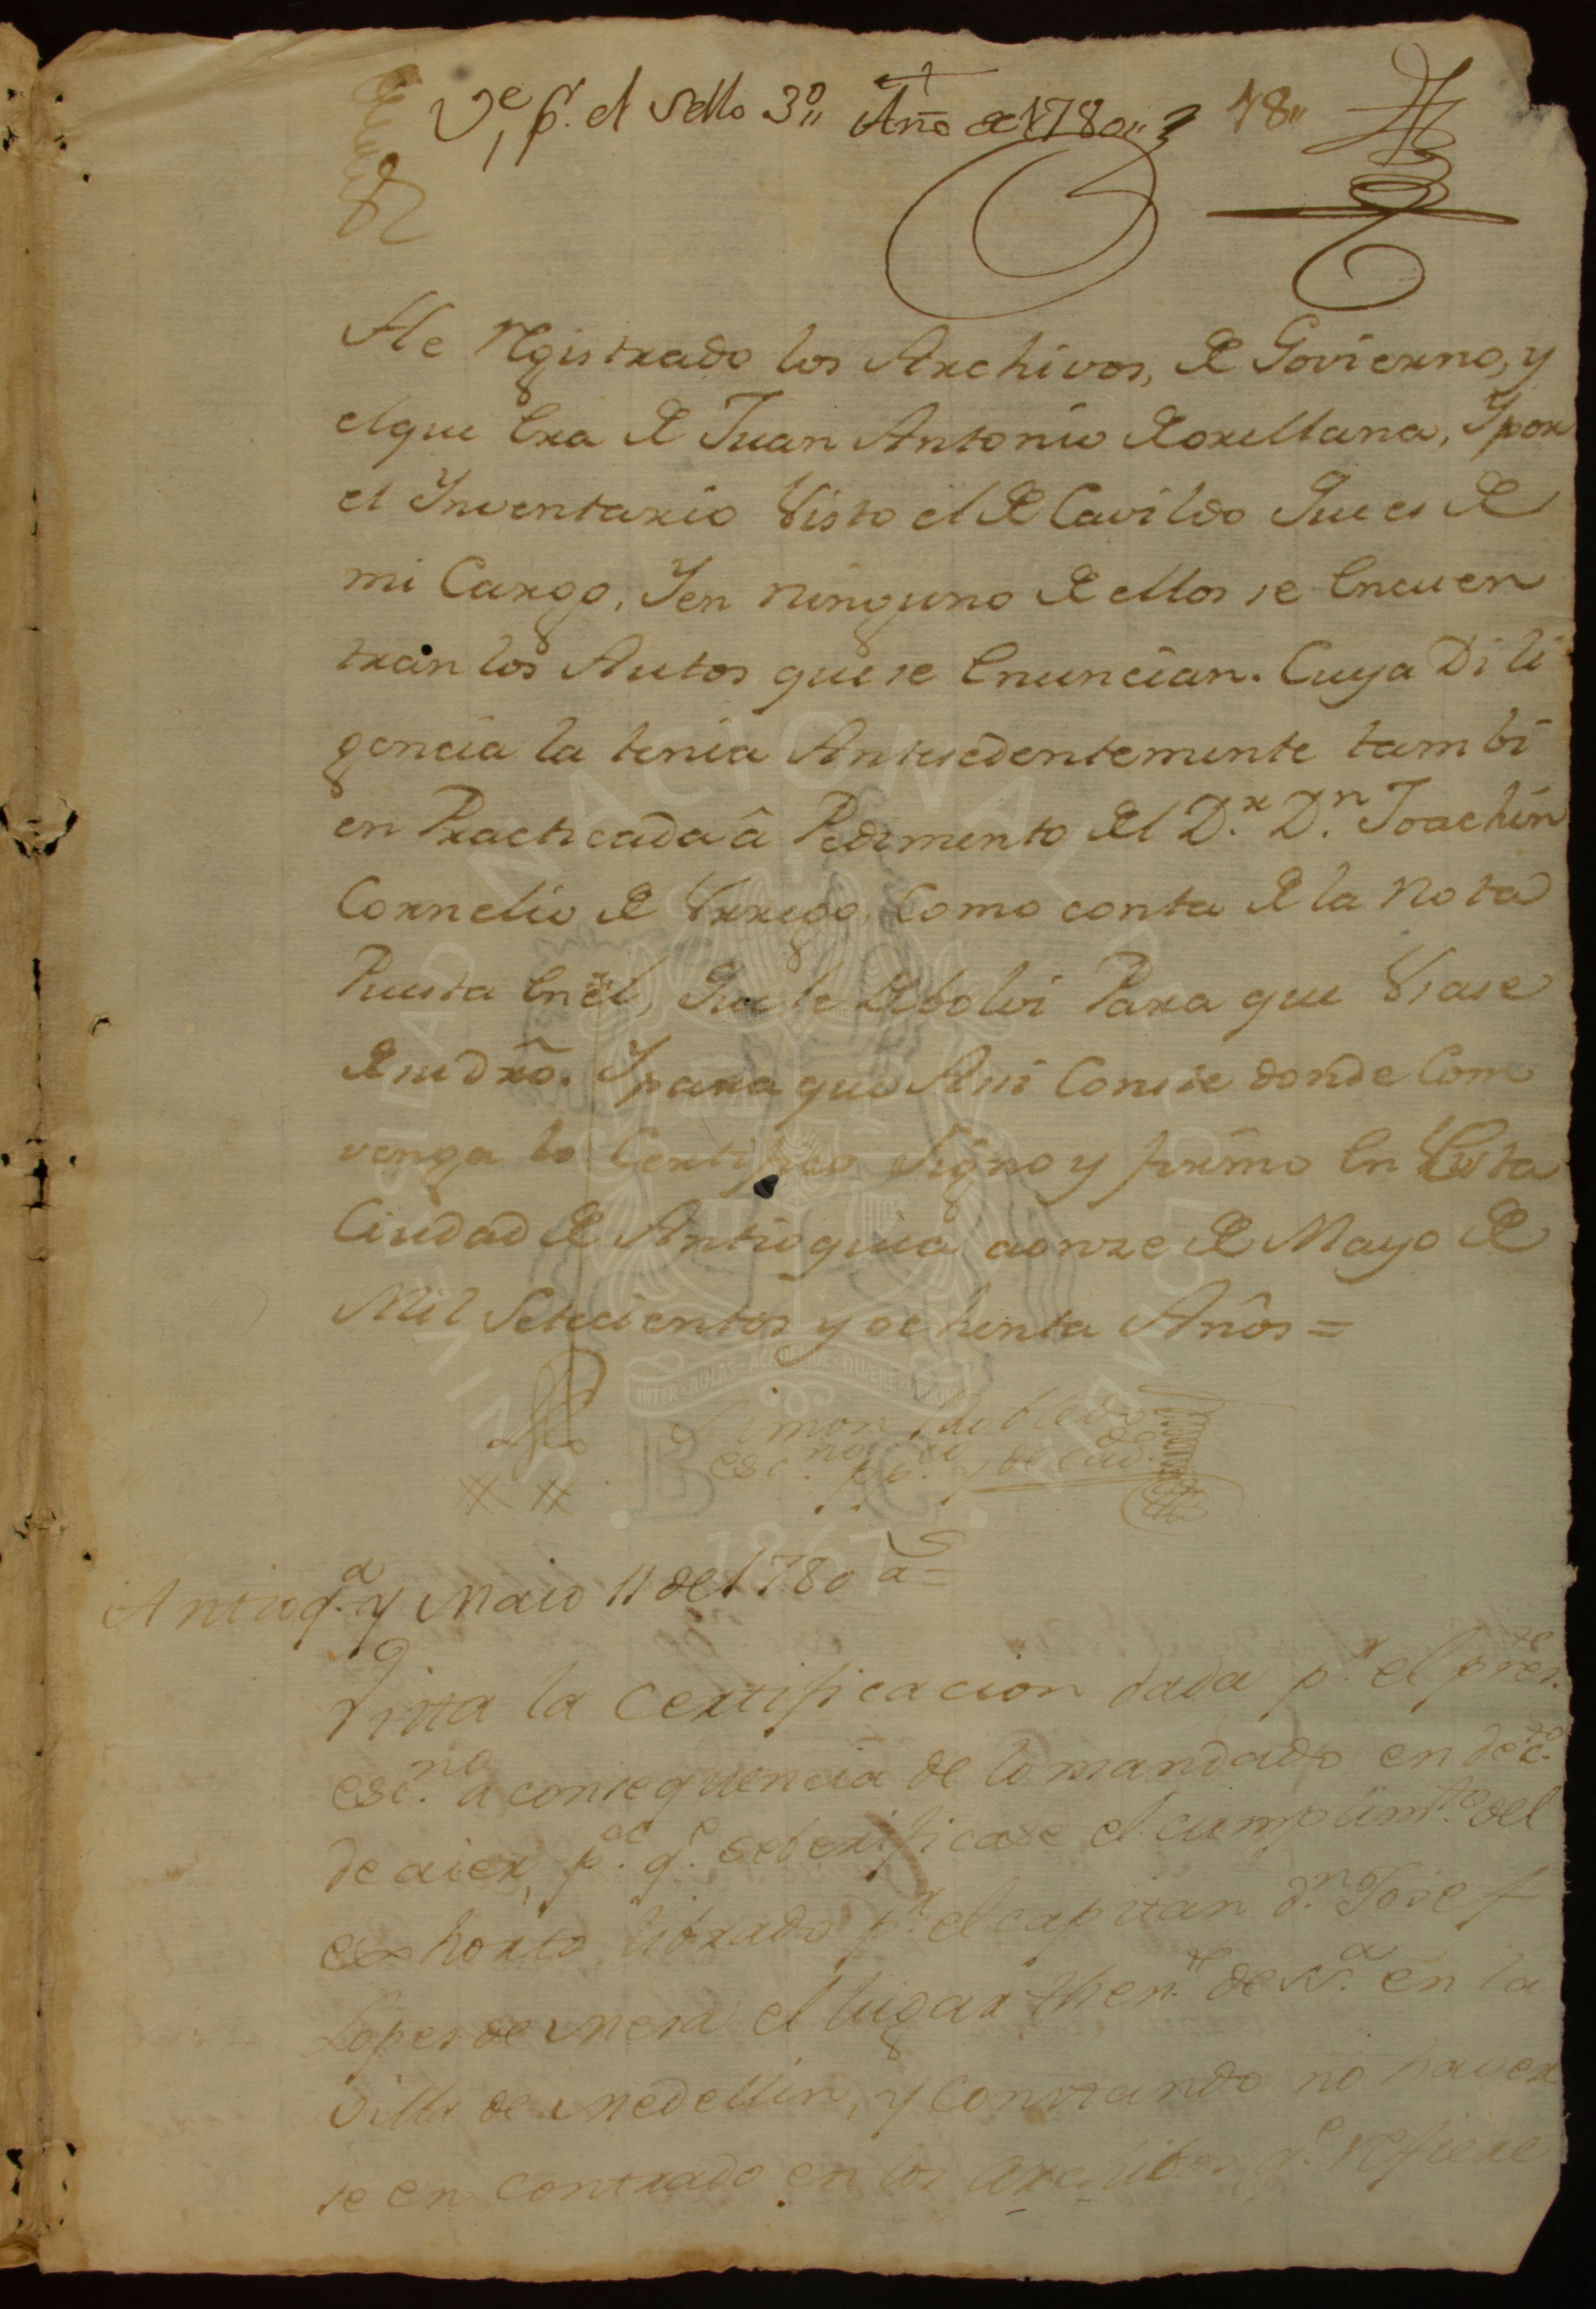 Ve, pr. el Sello 3o,, Año de 1780,, 78,,
He registrado los Archivos, de Govierno, y
elque Era de Juan Antonio de orellana, Ypor
el Ynventario Visto el de Cavildo Que es de
mi Cargo, Yen ninguno de ellos se Encuen
tran los Autos que se Enuncian. Cuya Dili
gencia la tenia Antesedentemente tambi
en Practicada â Pedimento del D.r D.n Joachin
Cornelio de Urrego, Como conta de la Nota
Puesta En el, Que le debolvi Para que Usase
de su dro. Ypara que Assi Conste donde Com
venga lo Certifico Signo y firmo En Esta
Ciudad de Antioquia aonze de Mayo de
Mil Setecientos y ochenta Años =
Simon Robledo
esc.no p.co y de Cav.do
Antioq.a y Maio 11 de 1780 as =
Vista la certificacion dada p.r el pres.te
esc.no a consequencia de lo mandado en dec.to
de aier, p.a q.e se berificase el cumplim.to del
exhorto librado p.r el capitan d.n Josef
Lopes de Mesa el lugar then.te de V.a en la
Villa de Medellin, y constando no haver
se en contrado en los archibos q.e refiere
UNIVERSIDAD NACIONAL DE COLOMBIA
INTER · AULAS · ACADEMIÆ · QUÆRE · VERUM
B C
· 1867 ·